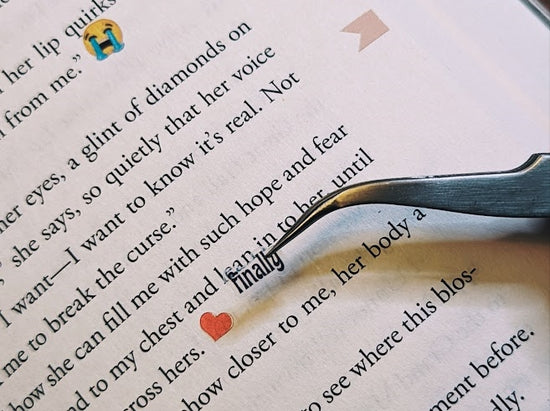 her lip quirks
from me.”
her eyes, a glint of diamonds on
she says, so quietly that her voice
I want—I want to know it’s real. Not
me to break the curse.”
how she can fill me with such hope and fear
to my chest and lean in to her, until
cross hers.
finally
how closer to me, her body a
to see where this blos-
ment before.
dly.